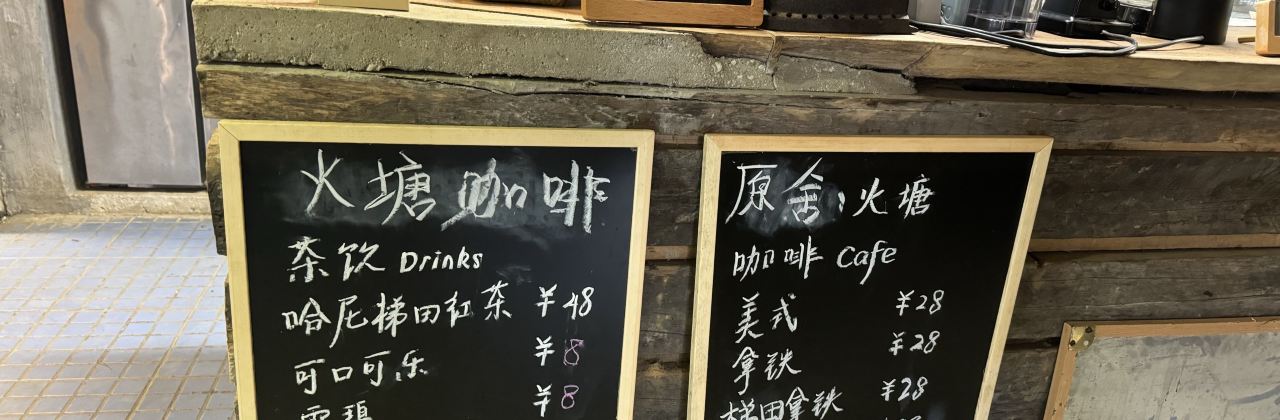 火塘咖啡
茶饮 Drinks
哈尼梯田红茶 ¥48
可口可乐 ¥8
雪碧 ¥8
原舍·火塘
咖啡 Cafe
美式 ¥28
拿铁 ¥28
梯田拿铁 ¥28